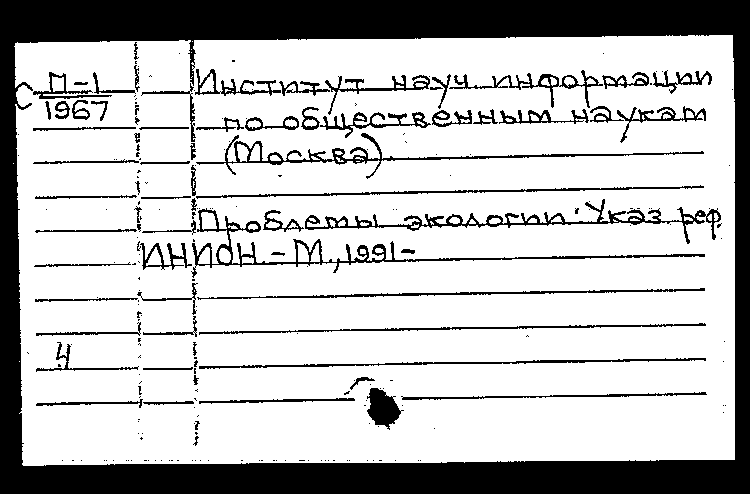 С П-1
1967
Институт науч. информации
по общественным наукам
(Москва).
Проблемы экологии: Указ. реф.
ИНИОН. - М., 1991-
4